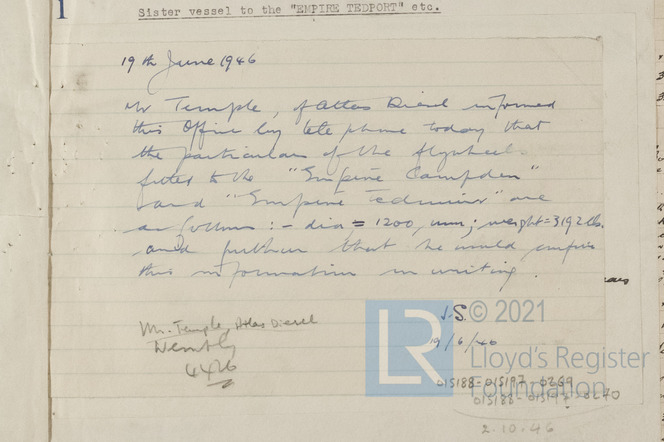 1
Sister vessel to the "EMPIRE TEDPORT" etc.
19th June 1946
Mr Temple, of Atlas Diesel informed
this Office by telephone today that
the particulars of the flywheel
fitted to the "Empire Campden"
and "Empire" are
as follows :- dia = 1200 mm; weight = 3192 lbs.
and further that he would confirm
this information in writing.
J.S.
19/6/46
Mr. Temple, Atlas Diesel
Wembley
4426
LR © 2021
Lloyd's Register
Foundation
015188-015197-0269
015188-015197-0270
2.10.46